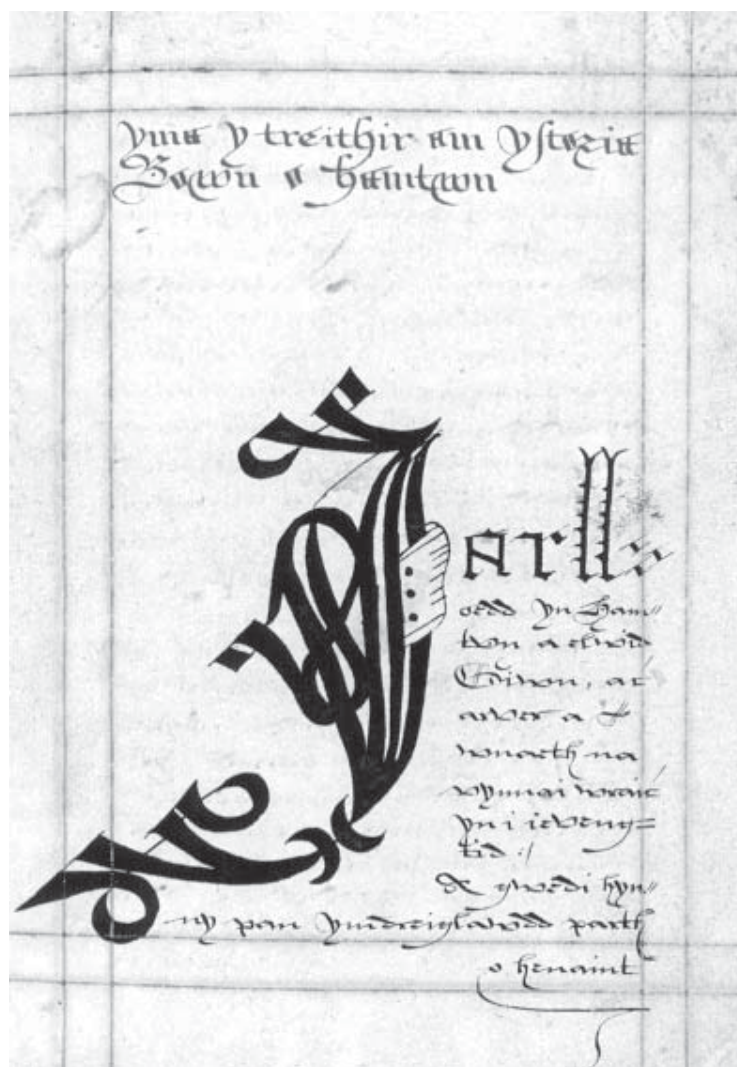 yma y treithir am ystoria
Bown o hamtwn
Iarll
oedd yn Ham=
twn a elwid
Giwn, ac
arver a
wnaeth na
vynnai wraic
yn i ieveng=
tid :/
& gwedi hyn=
ny pan ymdreiglawdd parth
o henaint